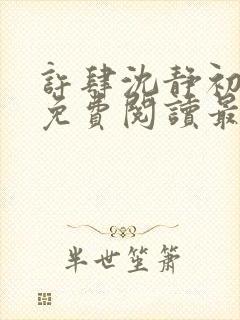 許肆沈靜初
免費閱讀最
半世笙簫